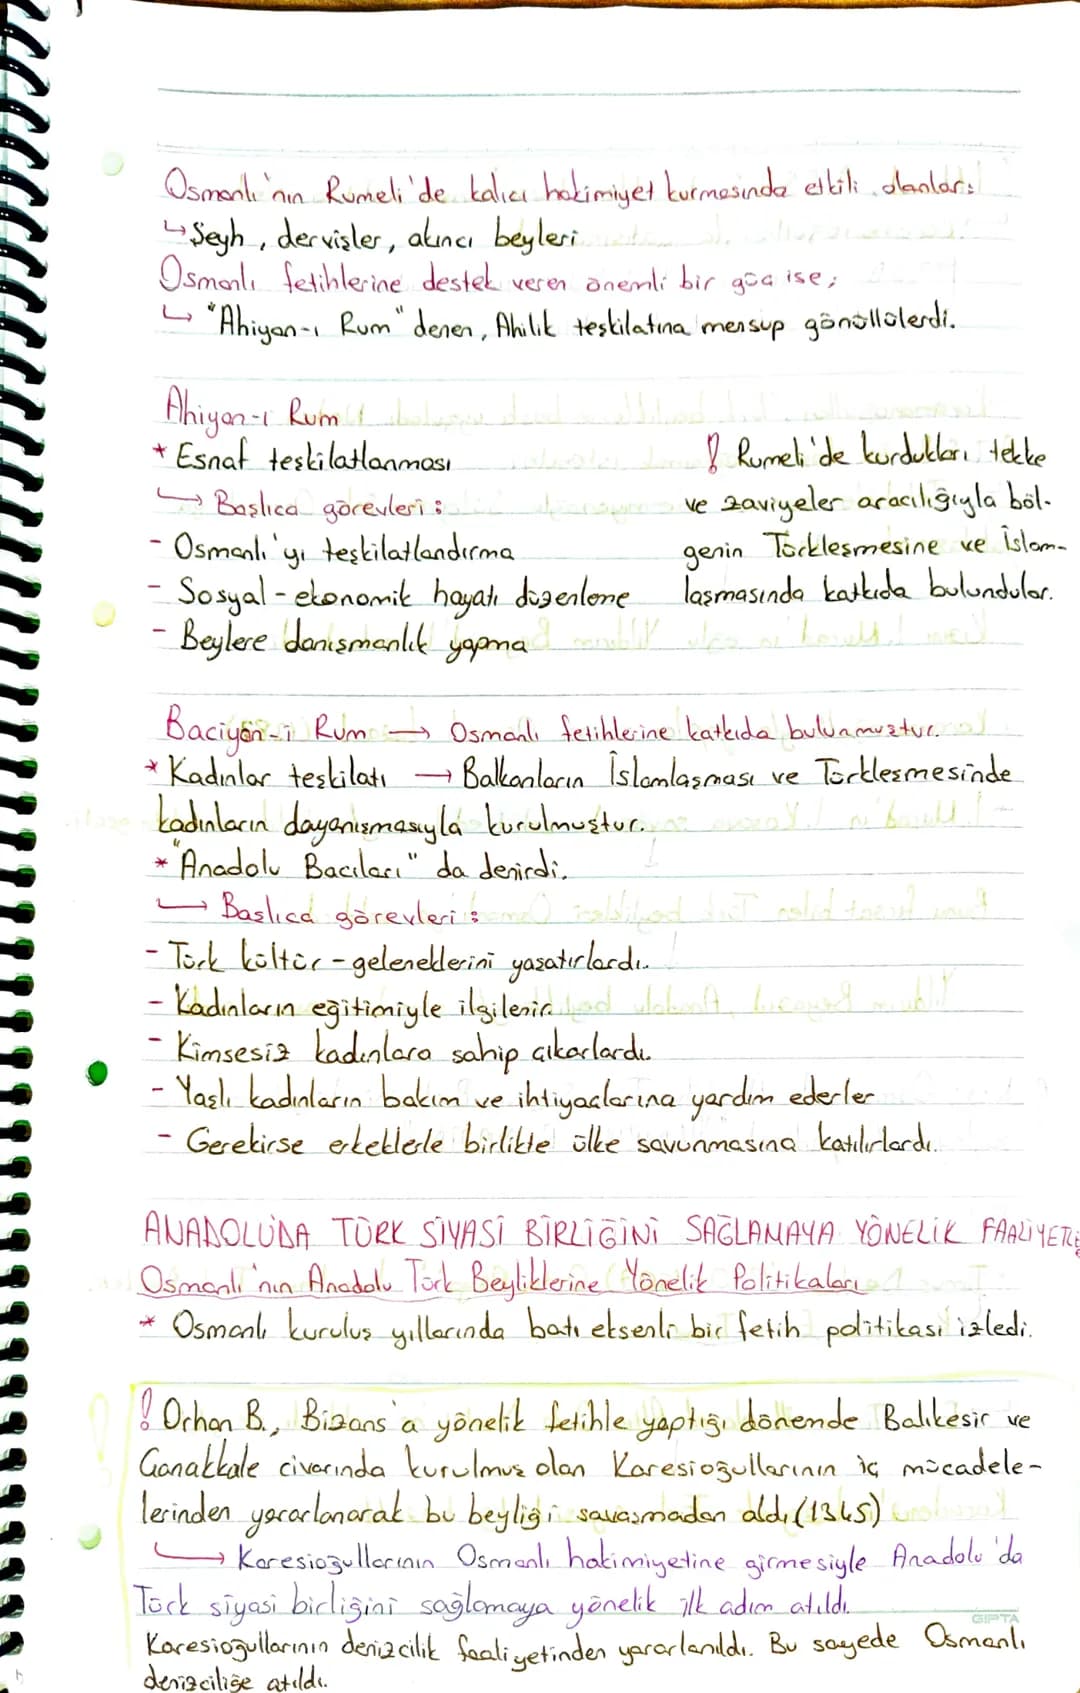 Osmanlı'nın Rumeli'de kalıcı hakimiyet kurmasında etkili olanlar:
↳ Şeyh, dervişler, akıncı beyleri
Osmanlı fetihlerine destek veren önemli bir güç ise;
↳ "Ahiyan-ı Rum" denen, Ahilik teşkilatına mensup gönüllülerdi.
Ahiyan-ı Rum
* Esnaf teşkilatlanması
↳ Başlıca görevleri:
- Osmanlı'yı teşkilatlandırma
- Sosyal-ekonomik hayatı düzenleme
- Beylere danışmanlık yapma
! Rumeli'de kurdukları tekke
ve zaviyeler aracılığıyla böl-
genin Türkleşmesine ve İslam-
laşmasında katkıda bulundular.
Baciyân-ı Rum → Osmanlı fetihlerine katkıda bulunmuştur.
* Kadınlar teşkilatı → Balkanların İslamlaşması ve Türkleşmesinde
kadınların dayanışmasıyla kurulmuştur.
* "Anadolu Bacıları" da denirdi.
↳ Başlıca görevleri:
- Türk kültür-geleneklerini yaşatırlardı.
- Kadınların eğitimiyle ilgilenir.
- Kimsesiz kadınlara sahip çıkarlardı.
- Yaşlı kadınların bakım ve ihtiyaçlarına yardım ederler
- Gerekirse erkeklerle birlikte ülke savunmasına katılırlardı.
ANADOLU'DA TÜRK SİYASİ BİRLİĞİNİ SAĞLAMAYA YÖNELİK FAALİYETLE
Osmanlı'nın Anadolu Türk Beyliklerine Yönelik Politikaları
* Osmanlı kuruluş yıllarında batı eksenli bir fetih politikası izledi.
! Orhan B., Bizans'a yönelik fetihle yaptığı dönemde Balıkesir ve
Çanakkale civarında kurulmuş olan Karesioğullarının iç mücadele-
lerinden yararlanarak bu beyliği savaşmadan aldı (1345)
↳ Karesioğullarının Osmanlı hakimiyetine girmesiyle Anadolu'da
Türk siyasi birliğini sağlamaya yönelik ilk adım atıldı.
GIPTA
Karesioğullarının denizcilik faaliyetinden yararlanıldı. Bu sayede Osmanlı
denizciliğe atıldı.